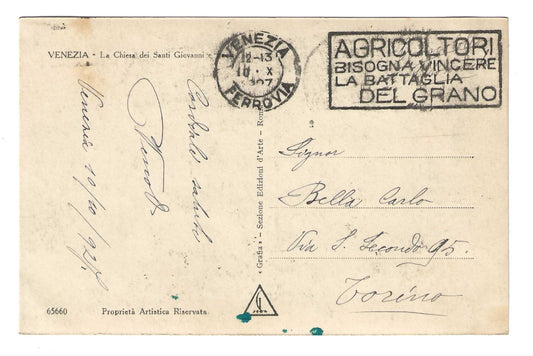 VENEZIA - La Chiesa dei Santi Giovanni
Cordiali saluti
Venezia 10/10/927
65660
Proprietà Artistica Riservata
«Grafia» - Sezione Edizioni d'Arte - Rom
VENEZIA
12-13
10 X
FERROVIA
AGRICOLTORI
BISOGNA VINCERE
LA BATTAGLIA
DEL GRANO
Signor
Bella Carlo
Via S. Secondo 95.
Torino